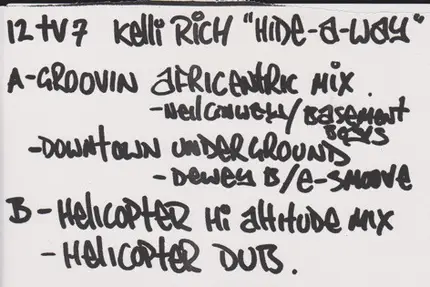 12tV7 Kelli RicH "HiDe-a-way"
A-GROOVIN aFRICeNtRic mix.
-Neil Conwell/Basement Boys
-DOWNtOWN UNDERGROUND
-Dewey B/e-smoove
B-HeliCOpteR Hi altitude mix
-HeliCOpteR DUB.